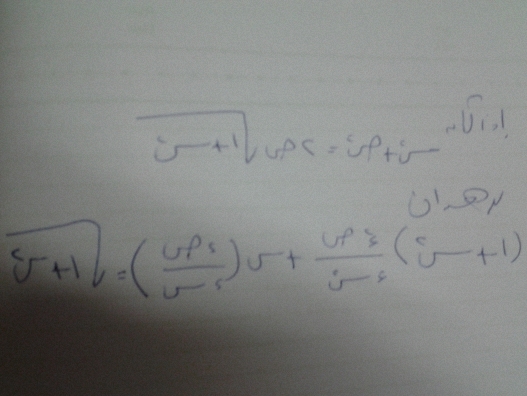 إذا كان س² + ص² = ٢ص √(١+س²)
برهن ان
(١+س²) ء²ص/ءس² + س (ءص/ءس) = √(١+س²)